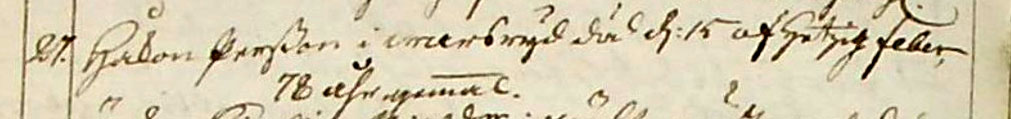 27. Håkon Persson i marbryd död d: 15 af Hetzig feber,
78 åhr gamal.